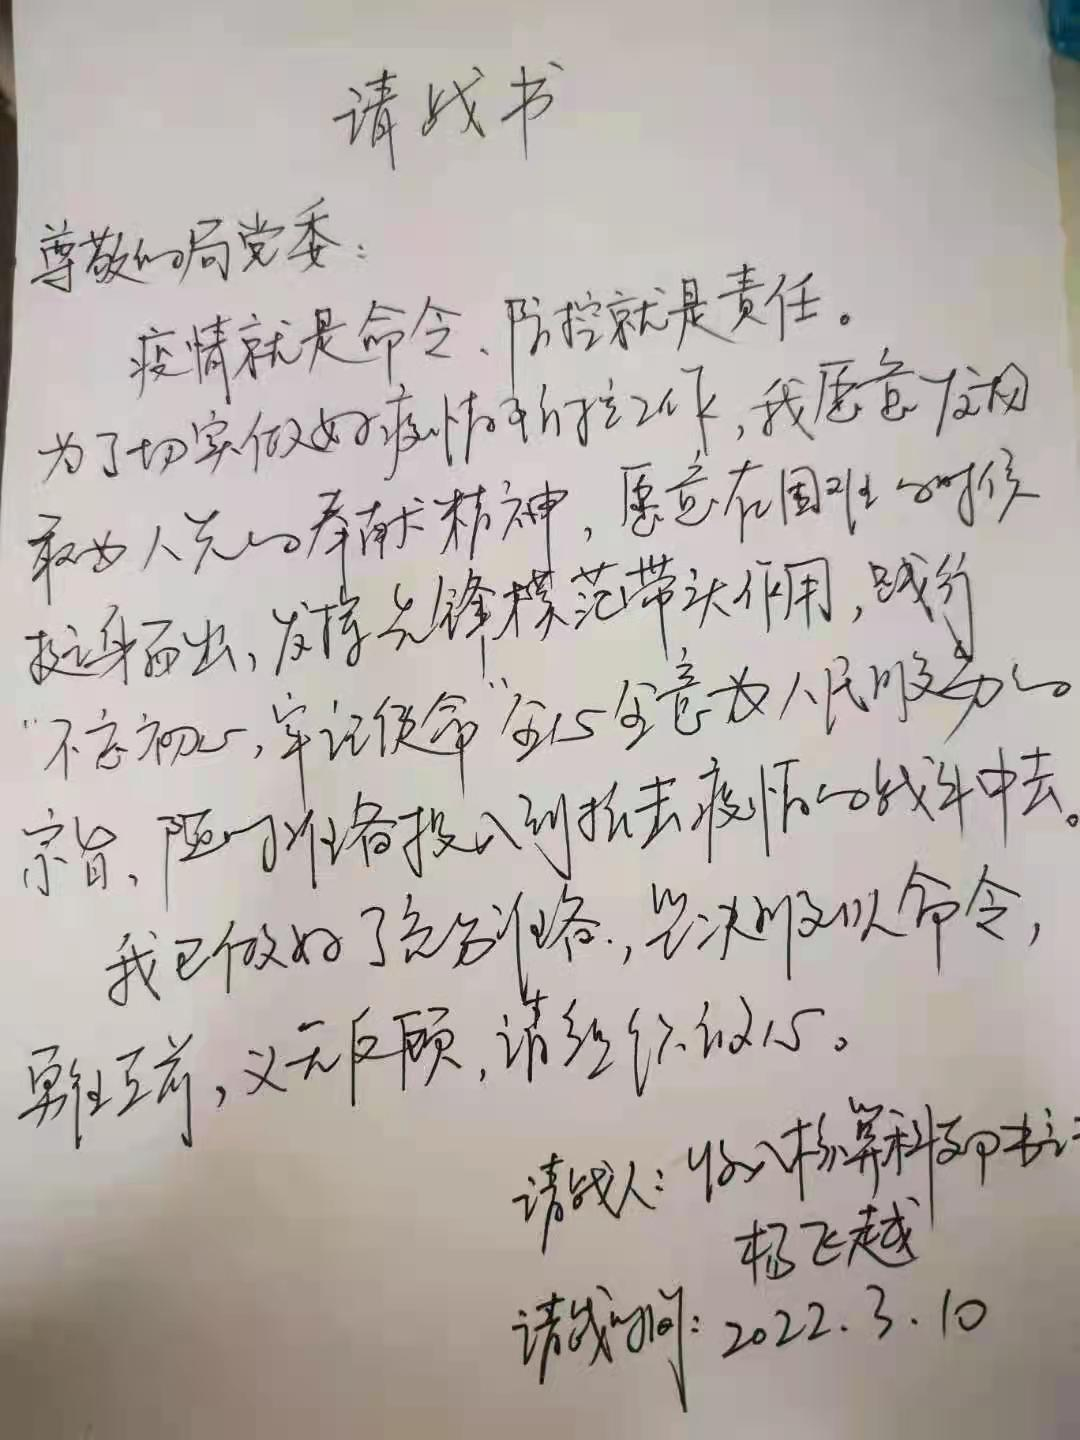 请战书
尊敬的局党委：
疫情就是命令、防控就是责任。
为了切实做好疫情防控工作，我愿意发扬
敢为人先的奉献精神，愿意在困难的时候
挺身而出、发挥先锋模范带头作用，践行
“不忘初心，牢记使命”全心全意为人民服务的
宗旨、随时准备投入到抗击疫情的战斗中去。
我已做好了充分准备，坚决服从命令，
勇往直前，义无反顾，请组织放心。
请战人：收入核算科支部书记
杨飞越
请战时间：2022.3.10